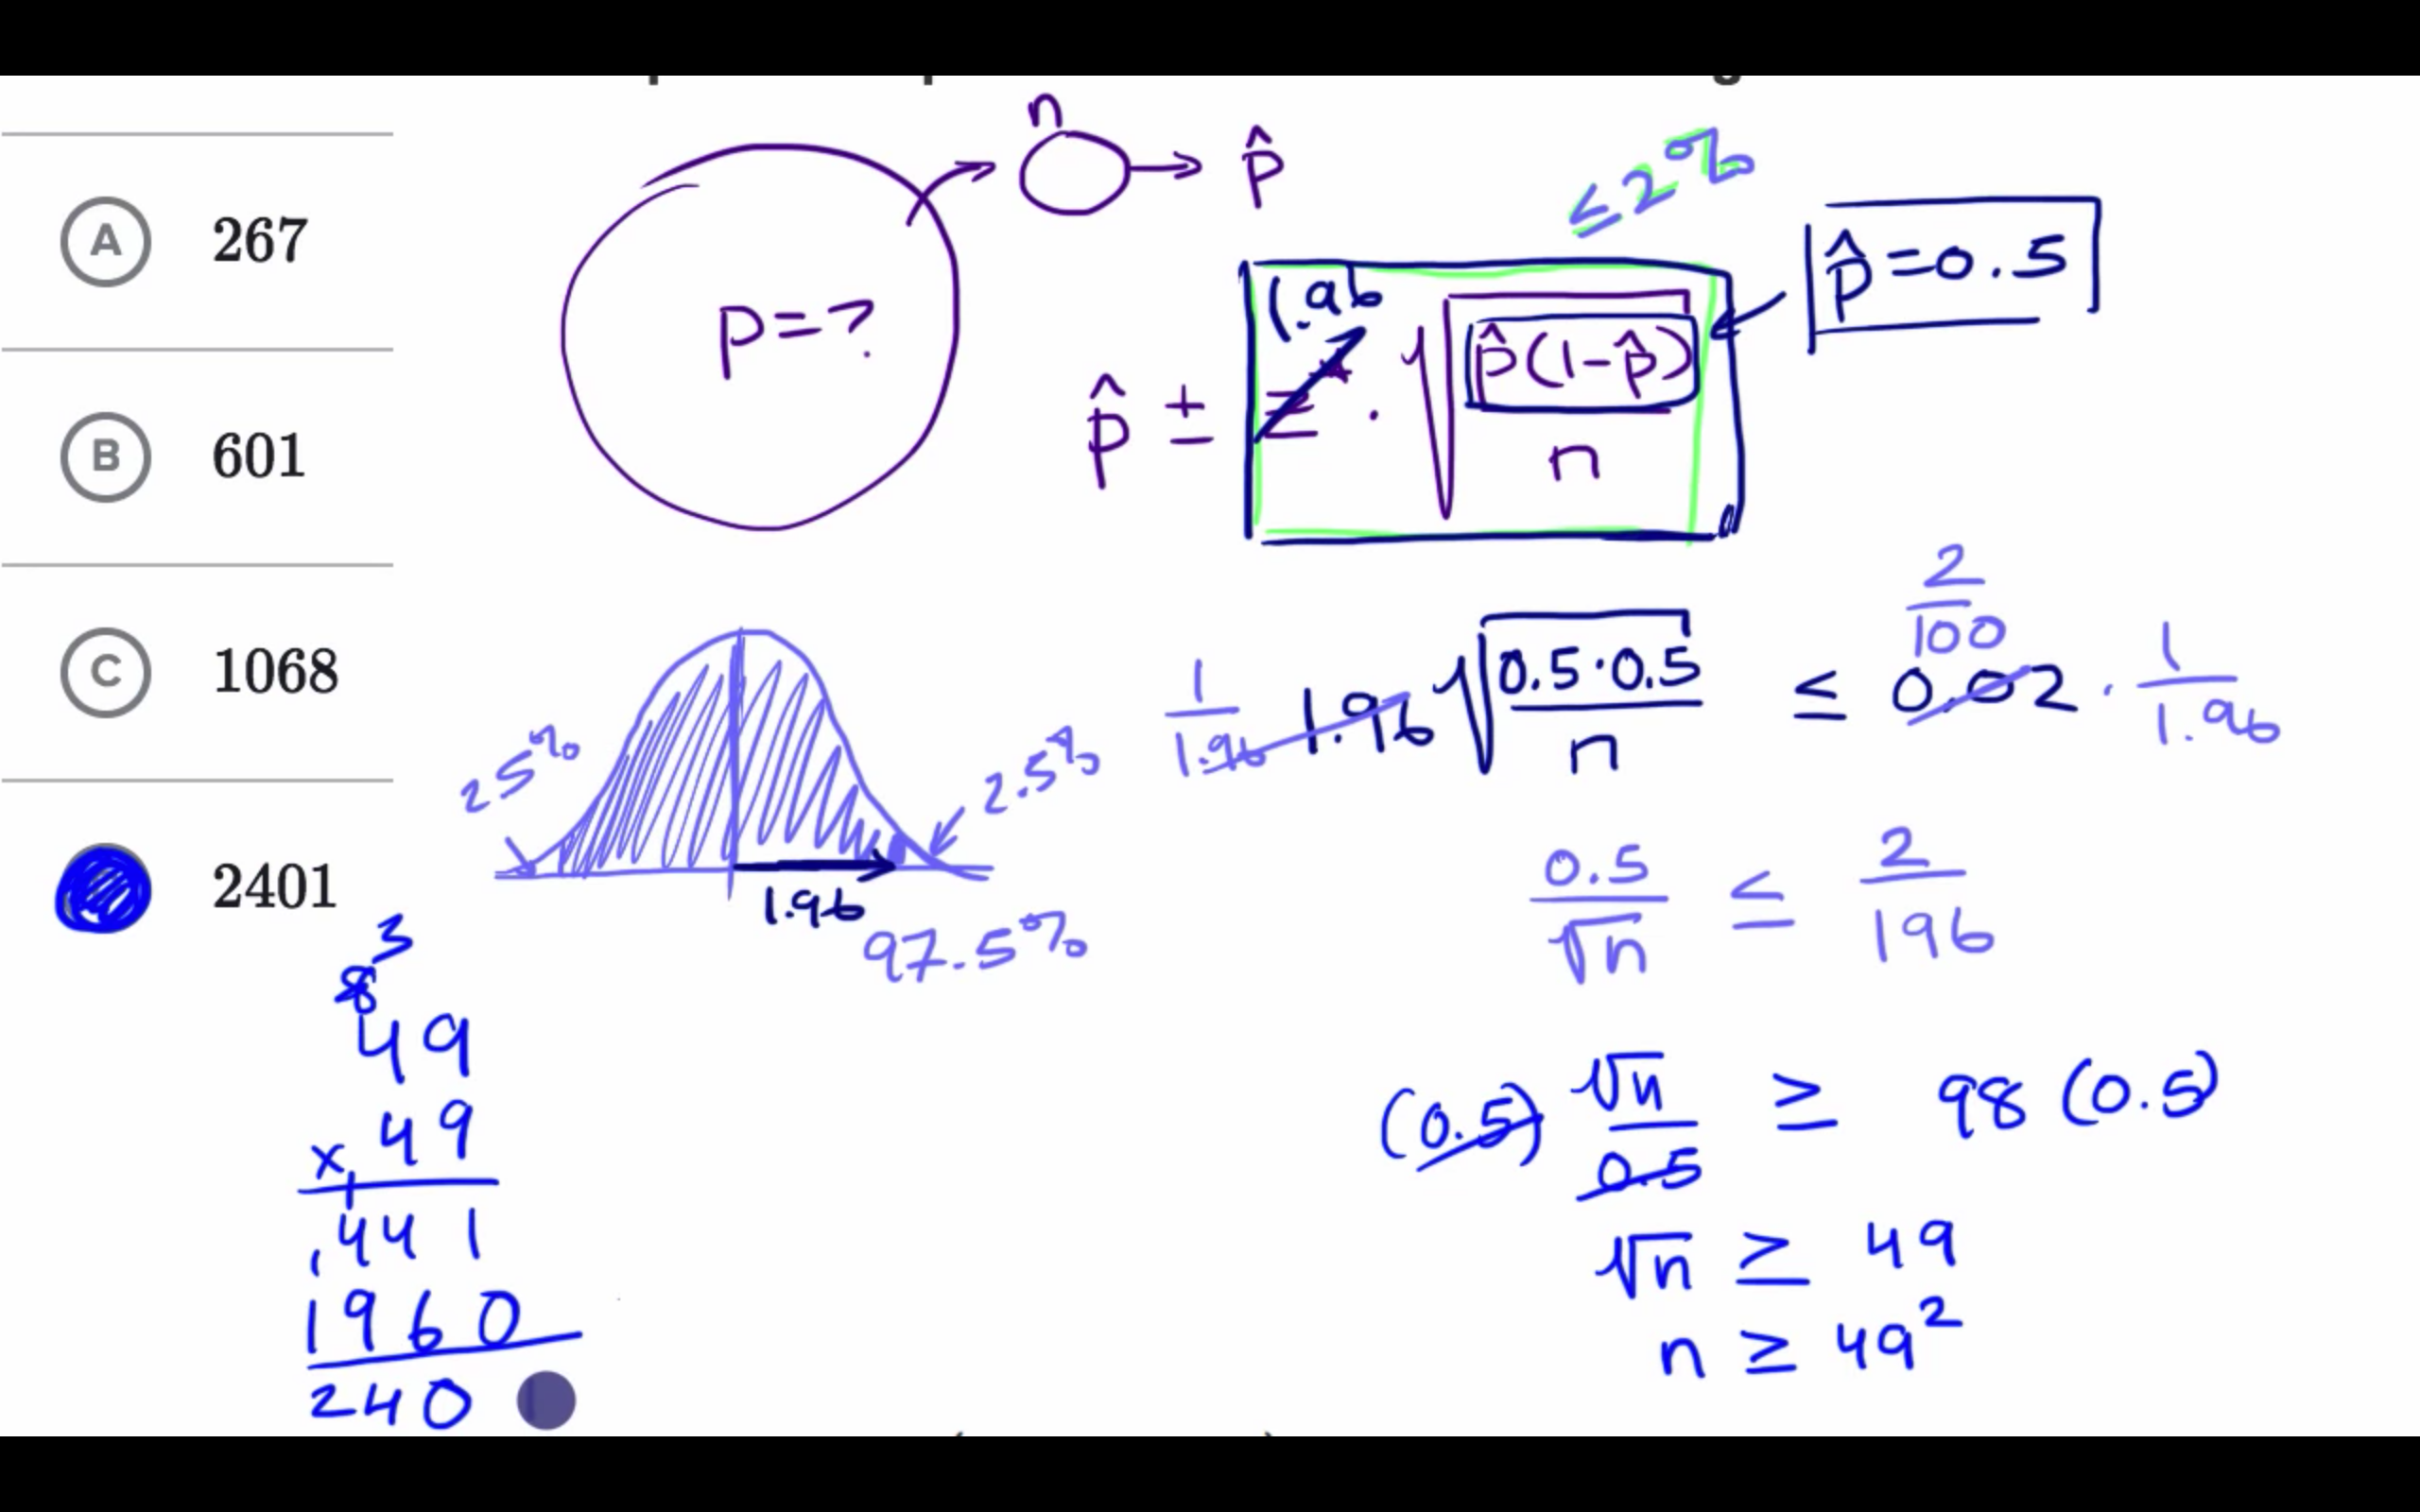 A 267
B 601
C 1068
2401
n
p̂
p=?
≤2%
p̂=0.5
1.96
p̂ ± z* · √ p̂(1-p̂)
n
25%
2.5%
1.96
97.5%
2
100
1/1.96 1.96 √ 0.5·0.5/n ≤ 0.02 · 1/1.96
0.5/√n ≤ 2/196
(0.5) √n/0.5 ≥ 98 (0.5)
√n ≥ 49
n ≥ 49²
3
8
49
x 49
1
441
1
1960
240